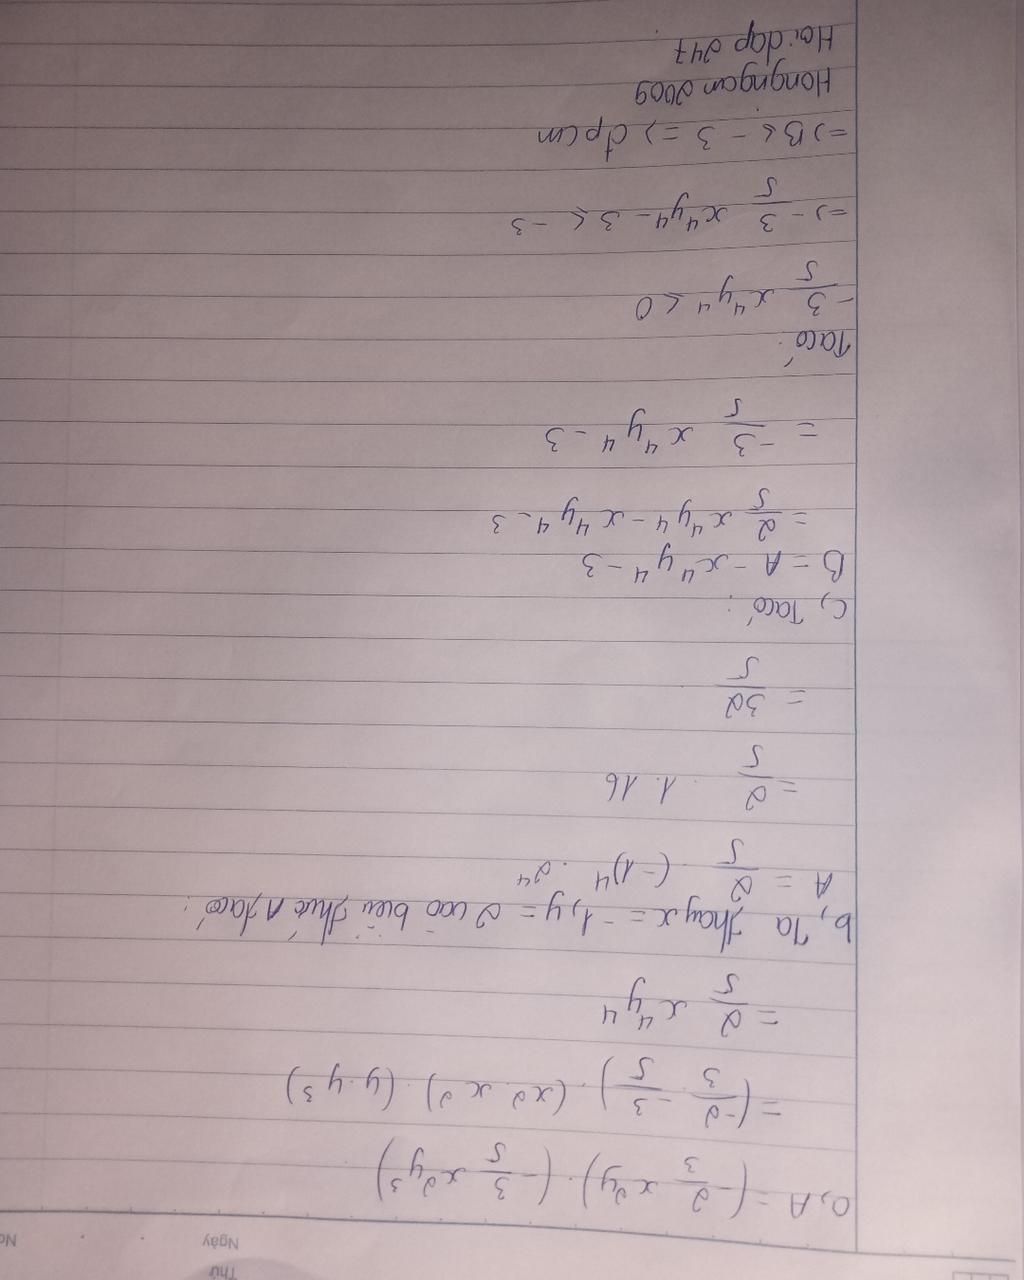 Thứ
Ngày
No
a, A = (-2/3 x²y) . (-3/5 x²y³)
= (-2/3 . -3/5) . (x² . x²) . (y . y³)
= 2/5 x⁴y⁴
b, Ta thay x = -1, y = 2 vào biểu thức A ta có:
A = 2/5 . (-1)⁴ . 2⁴
= 2/5 . 1 . 16
= 32/5
c, Ta có:
B = A - x⁴y⁴ - 3
= 2/5 x⁴y⁴ - x⁴y⁴ - 3
= -3/5 x⁴y⁴ - 3
Ta có:
-3/5 x⁴y⁴ < 0
=> -3/5 x⁴y⁴ - 3 < -3
=> B < -3 => đpcm
Hongngan2009
Hoidap247